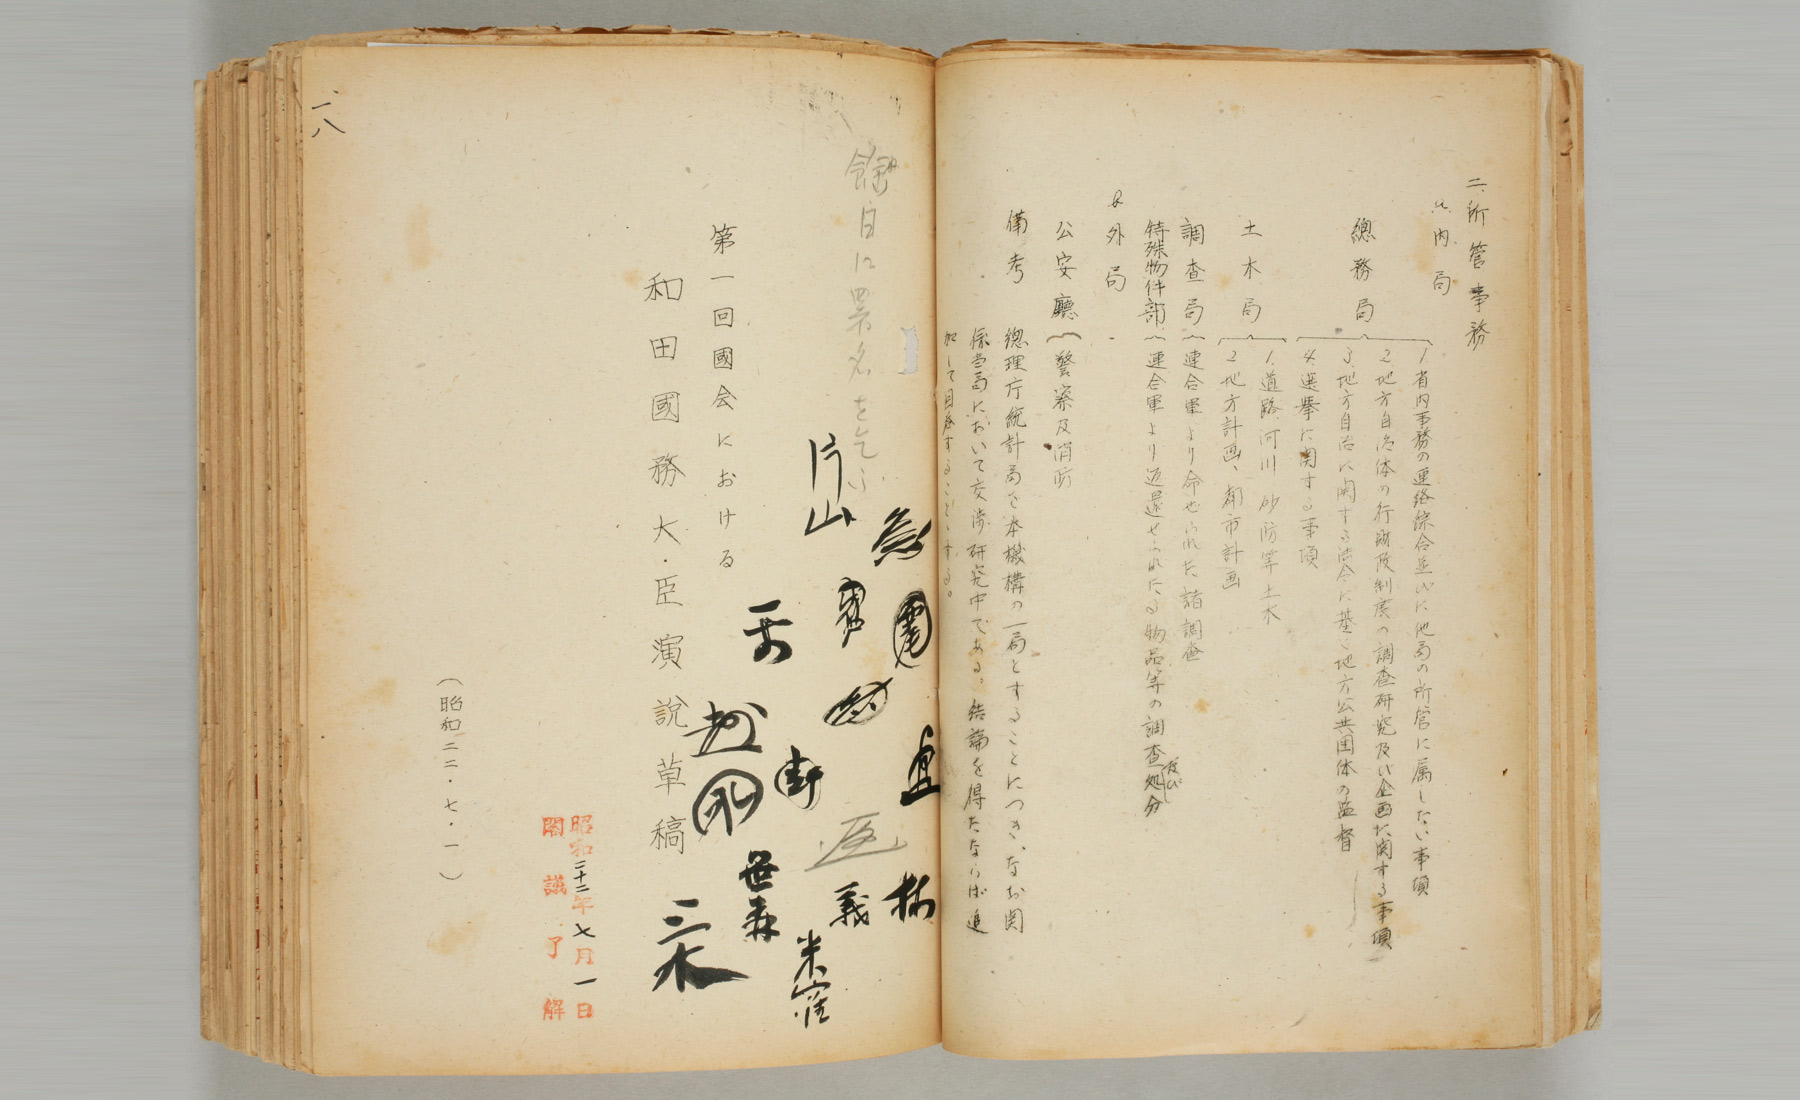 二、所管事務
内局
總務局
1.省内事務の連絡綜合並びに他局の所管に属しない事項
2.地方自治体の行財政制度の調査研究及び企画に関する事項
3.地方自治に関する法令に基く地方公共団体の監督
4.選挙に関する事項
土木局
1.道路河川砂防等土木
2.地方計画、都市計画
調査局
連合軍より命せられた諸調査
特殊物件部
連合軍より返還せられたる物品等の調査及び処分
外局
公安廳
警察及消防
備考
總理庁統計局を本機構の一局とすることにつき、なお関
係当局において交渉研究中である。結論を得たならば追
加して目することゝする。
一八
餘白に署名を乞ふ
第一回國会における
和田國務大臣演說草稿
(昭和二二・七・一)
昭和二十二年七月一日
閣議了解
片山
義
林
世耕
米窪
三木